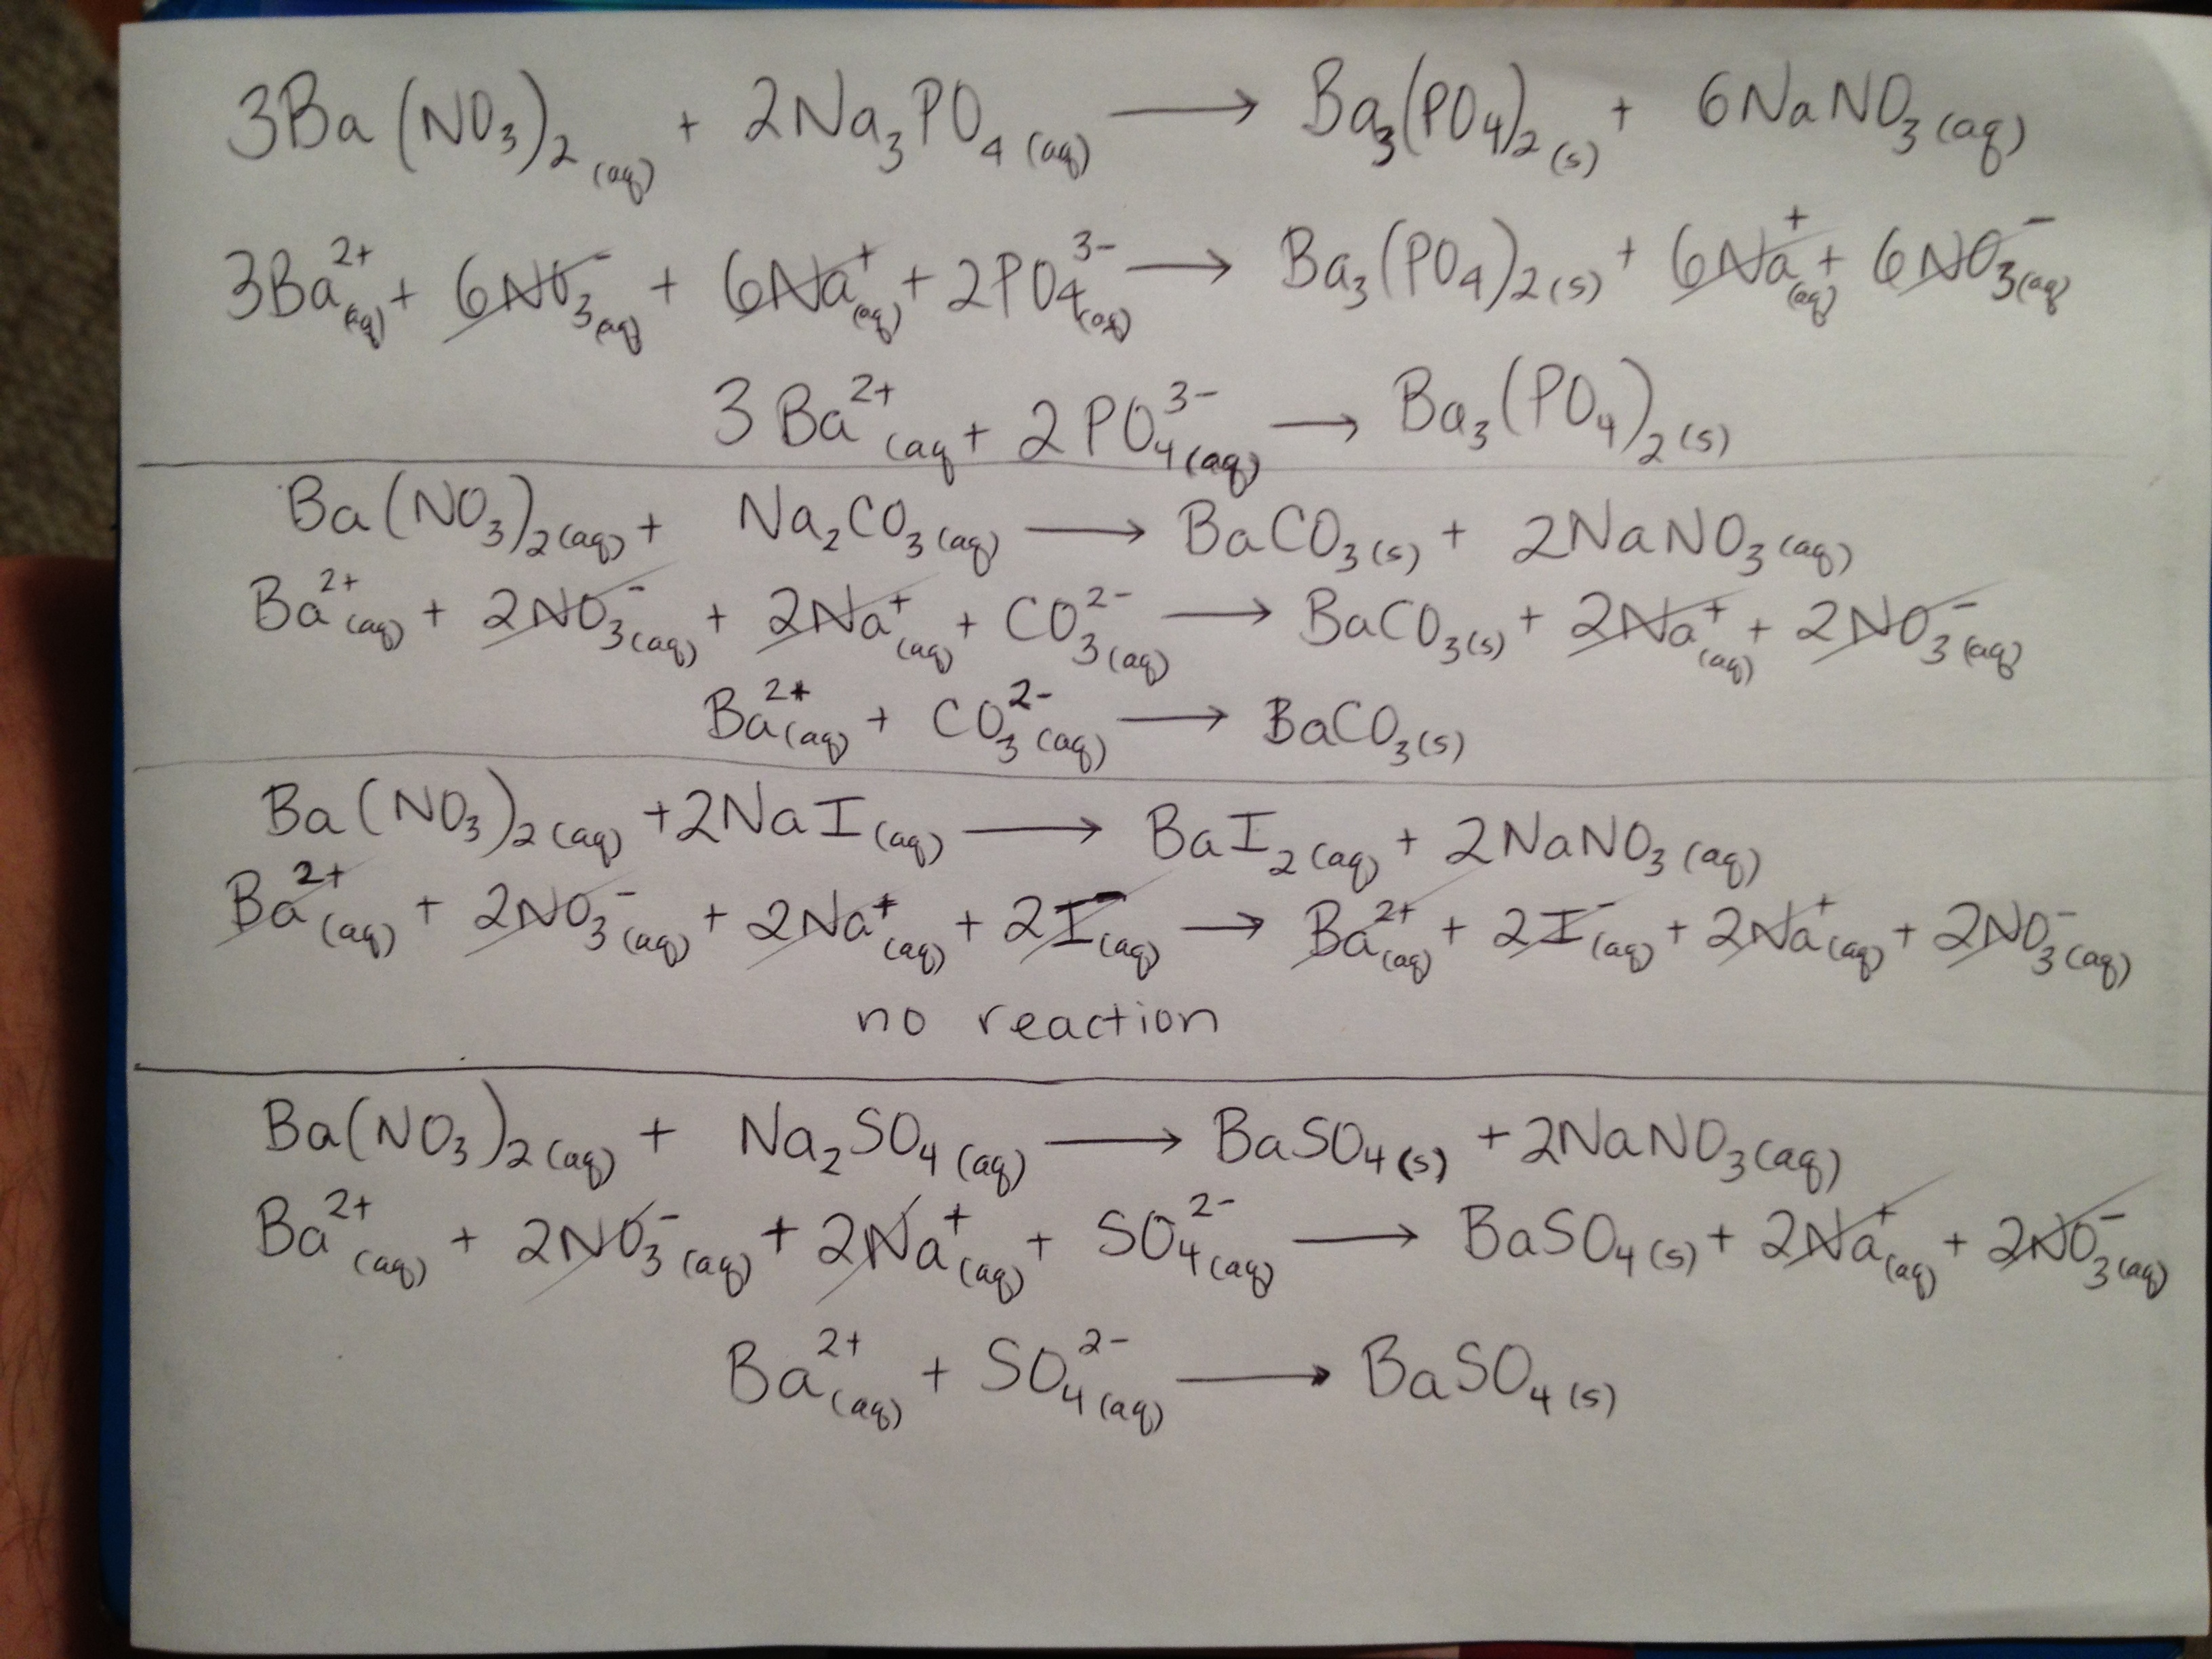 3Ba(NO₃)₂(aq) + 2Na₃PO₄(aq) ⟶ Ba₃(PO₄)₂(s) + 6NaNO₃(aq)
3Ba²⁺(aq) + 6NO₃⁻(aq) + 6Na⁺(aq) + 2PO₄³⁻(aq) ⟶ Ba₃(PO₄)₂(s) + 6Na⁺(aq) + 6NO₃⁻(aq
3Ba²⁺(aq + 2PO₄³⁻(aq) ⟶ Ba₃(PO₄)₂(s)
Ba(NO₃)₂(aq) + Na₂CO₃(aq) ⟶ BaCO₃(s) + 2NaNO₃(aq)
Ba²⁺(aq) + 2NO₃⁻(aq) + 2Na⁺(aq) + CO₃²⁻(aq) ⟶ BaCO₃(s) + 2Na⁺(aq) + 2NO₃⁻(aq)
Ba²⁺(aq) + CO₃²⁻(aq) ⟶ BaCO₃(s)
Ba(NO₃)₂(aq) + 2NaI(aq) ⟶ BaI₂(aq) + 2NaNO₃(aq)
Ba²⁺(aq) + 2NO₃⁻(aq) + 2Na⁺(aq) + 2I⁻(aq) ⟶ Ba²⁺(aq) + 2I⁻(aq) + 2Na⁺(aq) + 2NO₃⁻(aq)
no reaction
Ba(NO₃)₂(aq) + Na₂SO₄(aq) ⟶ BaSO₄(s) + 2NaNO₃(aq)
Ba²⁺(aq) + 2NO₃⁻(aq) + 2Na⁺(aq) + SO₄²⁻(aq) ⟶ BaSO₄(s) + 2Na⁺(aq) + 2NO₃⁻(aq)
Ba²⁺(aq) + SO₄²⁻(aq) ⟶ BaSO₄(s)